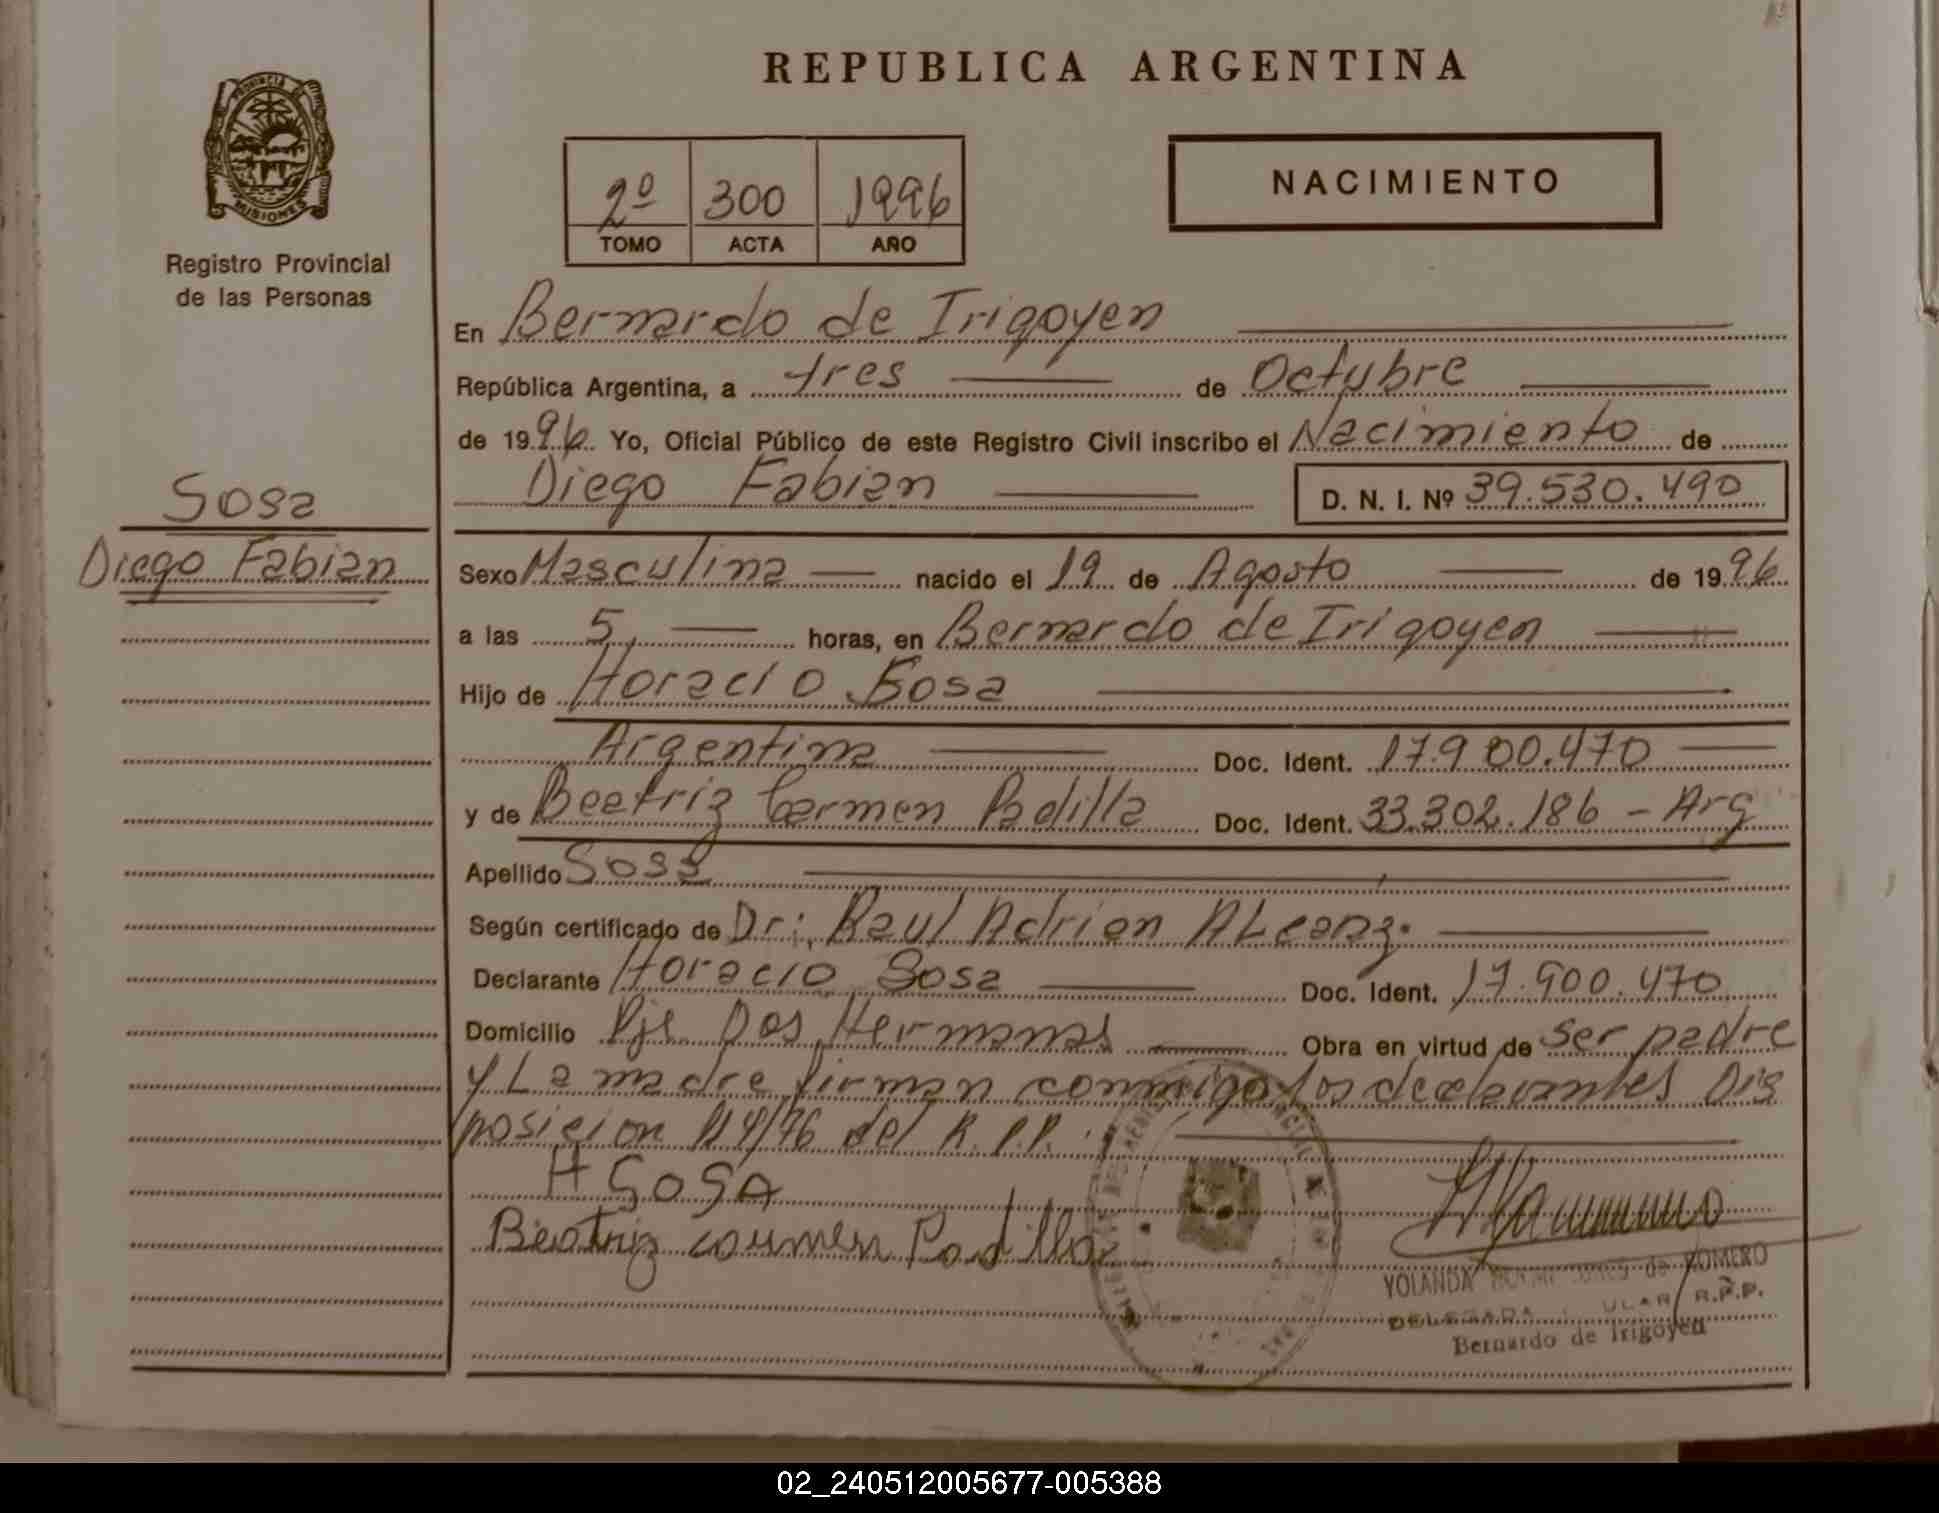 REPUBLICA ARGENTINA
PROVINCIA DE
MISIONES
Registro Provincial
de las Personas
2º 300 1996
TOMO ACTA AÑO
NACIMIENTO
En Bernardo de Irigoyen
República Argentina, a tres de Octubre
de 1996 Yo, Oficial Público de este Registro Civil inscribo el Nacimiento de
Diego Fabian D. N. I. Nº 39.530.490
Sosa
Diego Fabian
Sexo Masculino nacido el 19 de Agosto de 1996
a las 5, horas, en Bernardo de Irigoyen
Hijo de Horacio Sosa
Argentina Doc. Ident. 17.900.470
y de Beatriz Carmen Padilla Doc. Ident. 33.302.186 - Arg
Apellido Sosa
Según certificado de Dr: Raul Adrian
Declarante Horacio Sosa Doc. Ident. 17.900.470
Domicilio Pje Dos Hermanas Obra en virtud de ser padre
y La madre firman conmigo los declarantes Dis
posicion 114/76 del R.P.P.
H SOSA
Beatriz carmen Padilla
YOLANDA de ROMERO
DELEGADA R.P.P.
Bernardo de Irigoyen
02_240512005677-005388